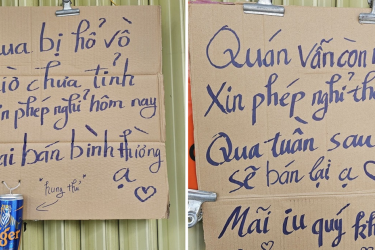 bị hổ vồ
chưa tỉnh
phép nghỉ hôm nay
bán bình thường
ạ
"hung thủ"
Quán vẫn còn
Xin phép nghỉ
Qua tuần sau
sẽ bán lại ạ
Mãi iu quý